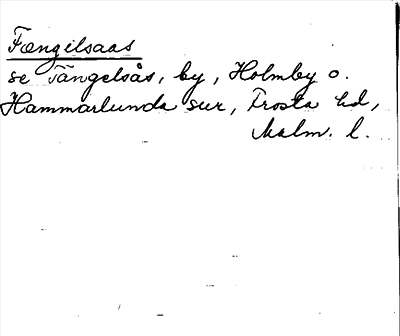 Fængilsaas
se Fängelsås, by, Holmby o.
Hammarlunda snr, Frosta hd,
Malm. l.